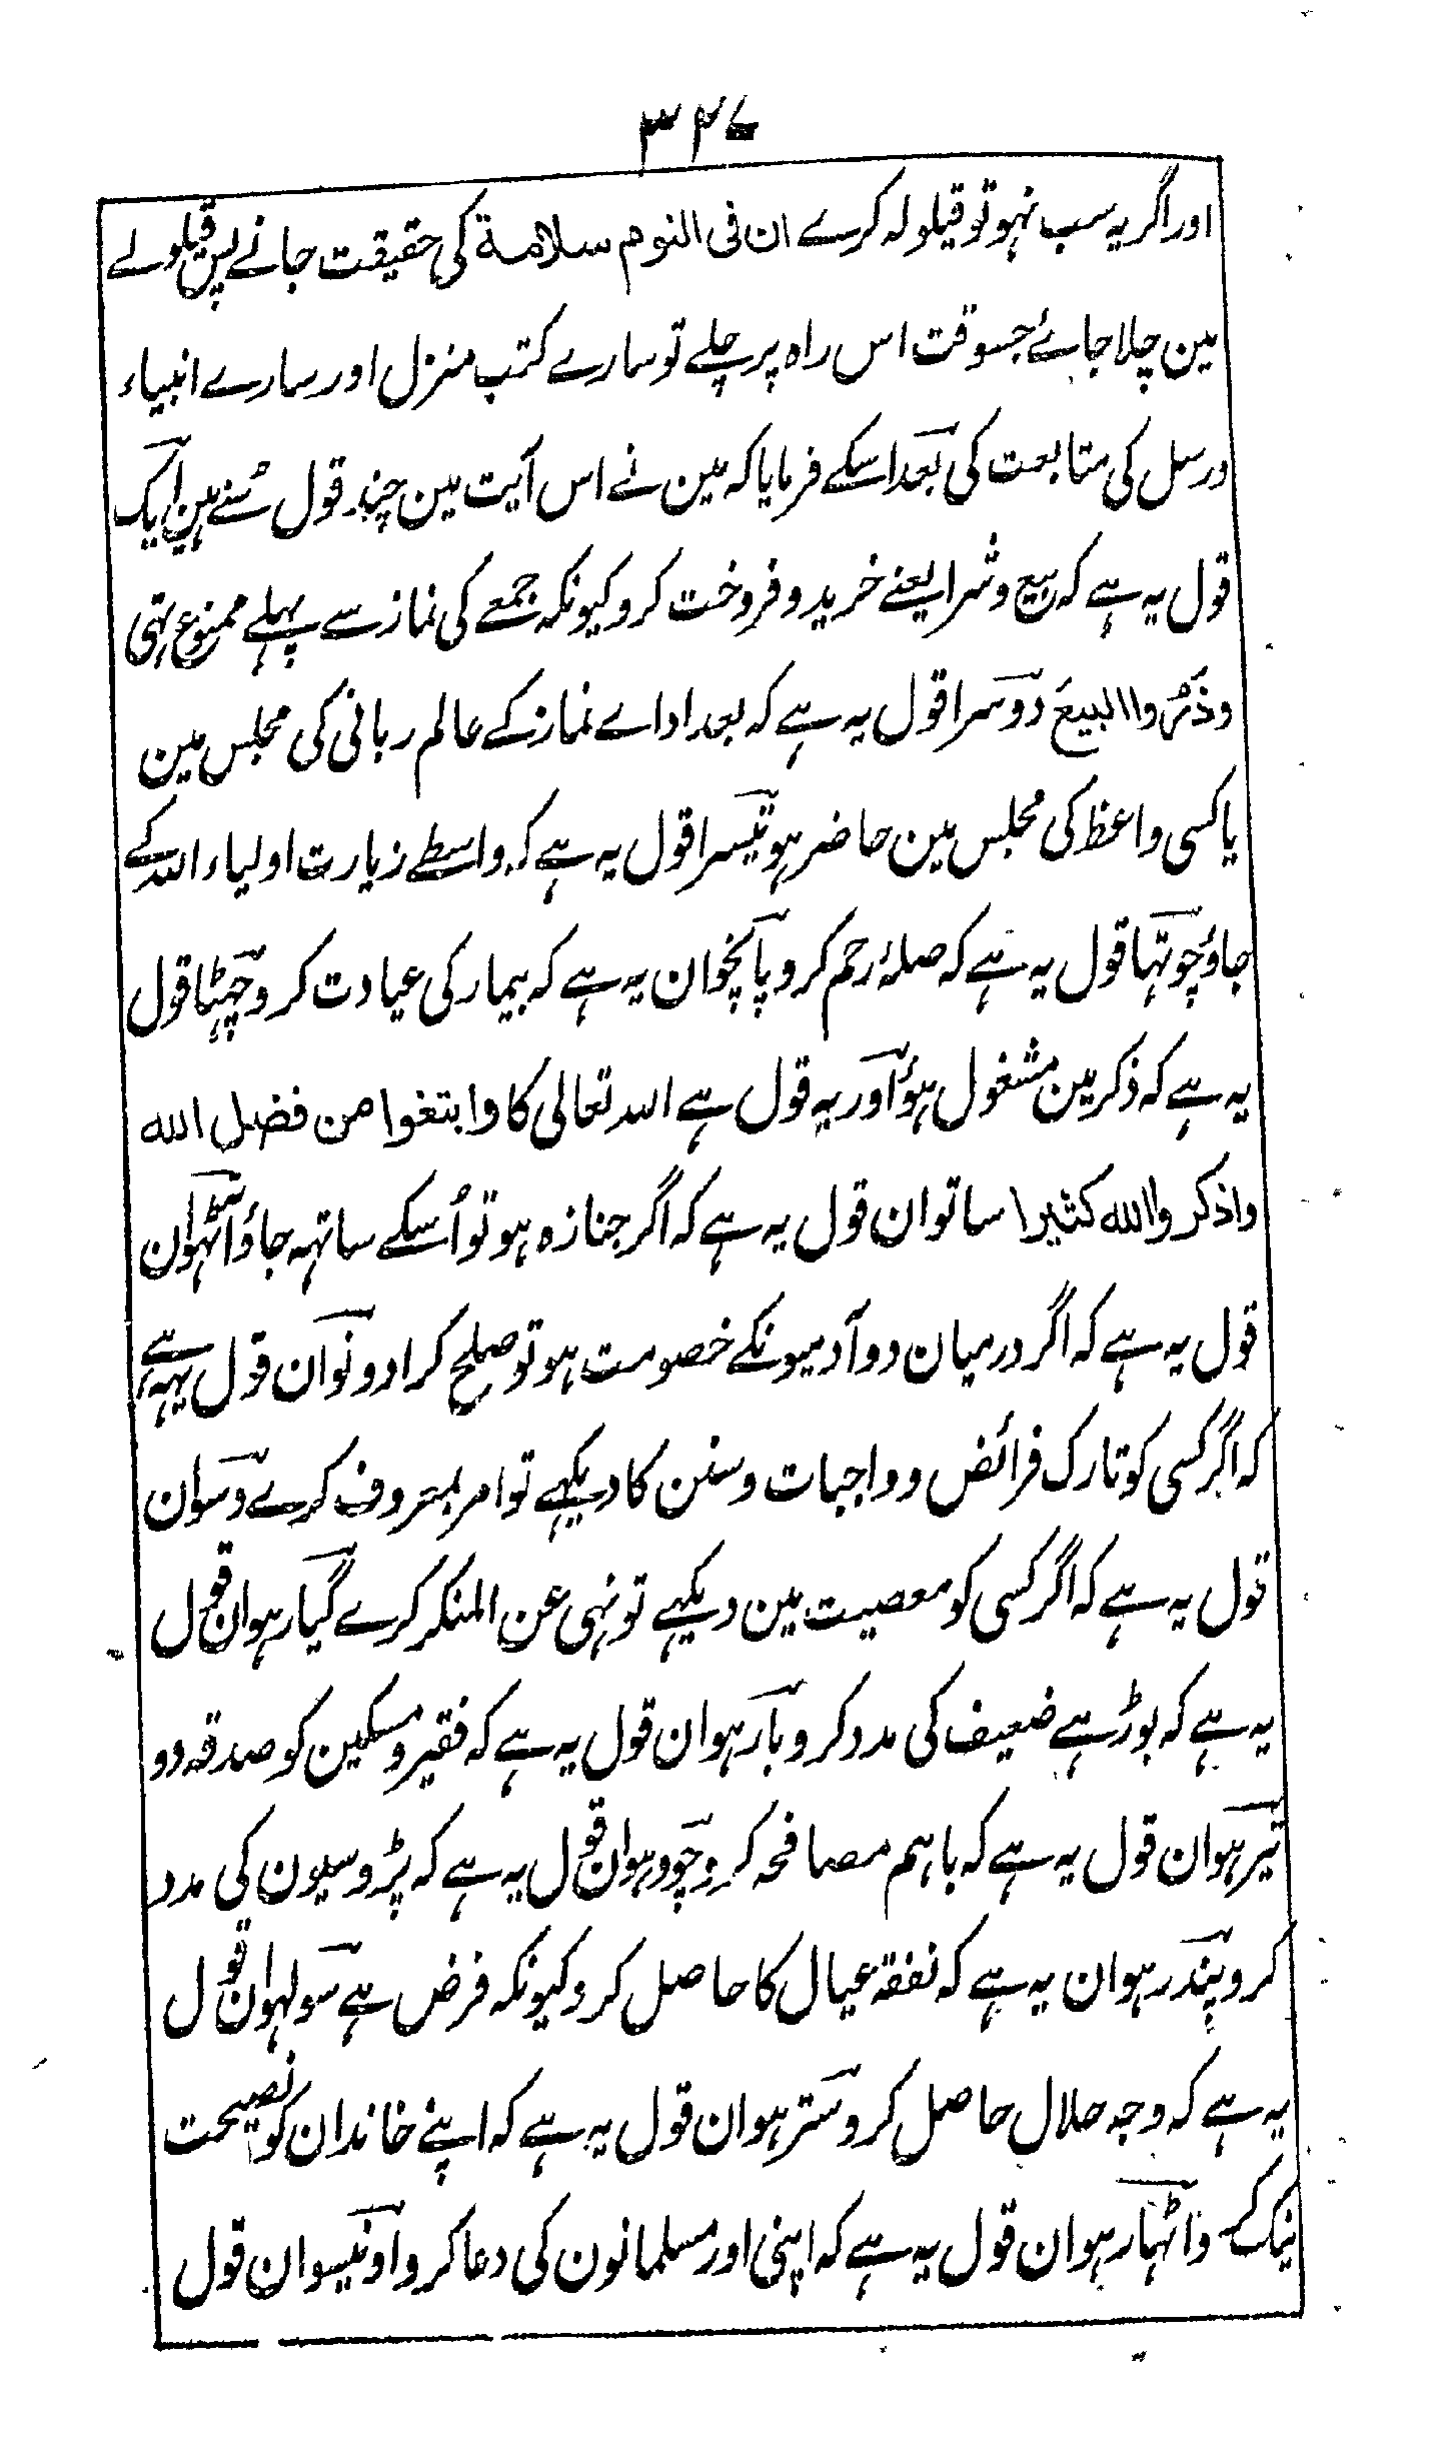 ۳۲۷
اور اگر یہ سب نہو تو قیلولہ کرے ان فی النوم سلامة کی حقیقت جانے پس قیلولے
مین چلا جائے جسوقت اس راہ پر چلے تو سارے کتب منزل اور سارے انبیاء
ورسل کی متابعت کی بعد اسکے فرمایا کہ مین نے اس آیت مین چند قول سُنے ہین ایک
قول یہ ہے کہ بیع وشرا یعنے خرید و فروخت کرو کیونکہ جمعے کی نماز سے پہلے ممنوع تہی
وذَرُوا البیعَ دوسرا قول یہ ہے کہ بعد اداے نماز کے عالم ربانی کی مجلس مین
یا کسی واعظ کی مجلس مین حاضر ہو تیسرا قول یہ ہے کہ واسطے زیارت اولیاء اللہ کے
جاؤ چوتہا قول یہ ہے کہ صلۂ رحم کرو پانچوان یہ ہے کہ بیمار کی عیادت کرو چہٹا قول
یہ ہے کہ ذکر مین مشغول ہوٗ اور یہ قول ہے اللہ تعالی کا وابتغوا من فضل الله
واذکروا الله کثیرا ساتوان قول یہ ہے کہ اگر جنازہ ہو تو اُسکے ساتہہ جاؤ آٹہوان
قول یہ ہے کہ اگر درمیان دو آدمیونکے خصومت ہو تو صلح کرادو نوان قول یہہ ہے
کہ اگر کسی کو تارک فرائض و واجبات و سنن کا دیکہے تو امر بمعروف کرے دسوان
قول یہ ہے کہ اگر کسی کو معصیت مین دیکہے تو نہی عن المنکر کرے گیارہوان قول
یہ ہے کہ بوڑہے ضعیف کی مدد کرو بارہوان قول یہ ہے کہ فقیر و مسکین کو صدقہ دو
تیرہوان قول یہ ہے کہ باہم مصافحہ کرو چودہوان قول یہ ہے کہ پڑوسیون کی مدد
کرو پندرہوان یہ ہے کہ نفقہ عیال کا حاصل کرو کیونکہ فرض ہے سولہوان قول
یہ ہے کہ وجہ حلال حاصل کرو سترہوان قول یہ ہے کہ اپنے خاندان کو نصیحت
نیک کرو اٹہارہوان قول یہ ہے کہ اپنی اور مسلمانون کی دعا کرو اونیسوان قول